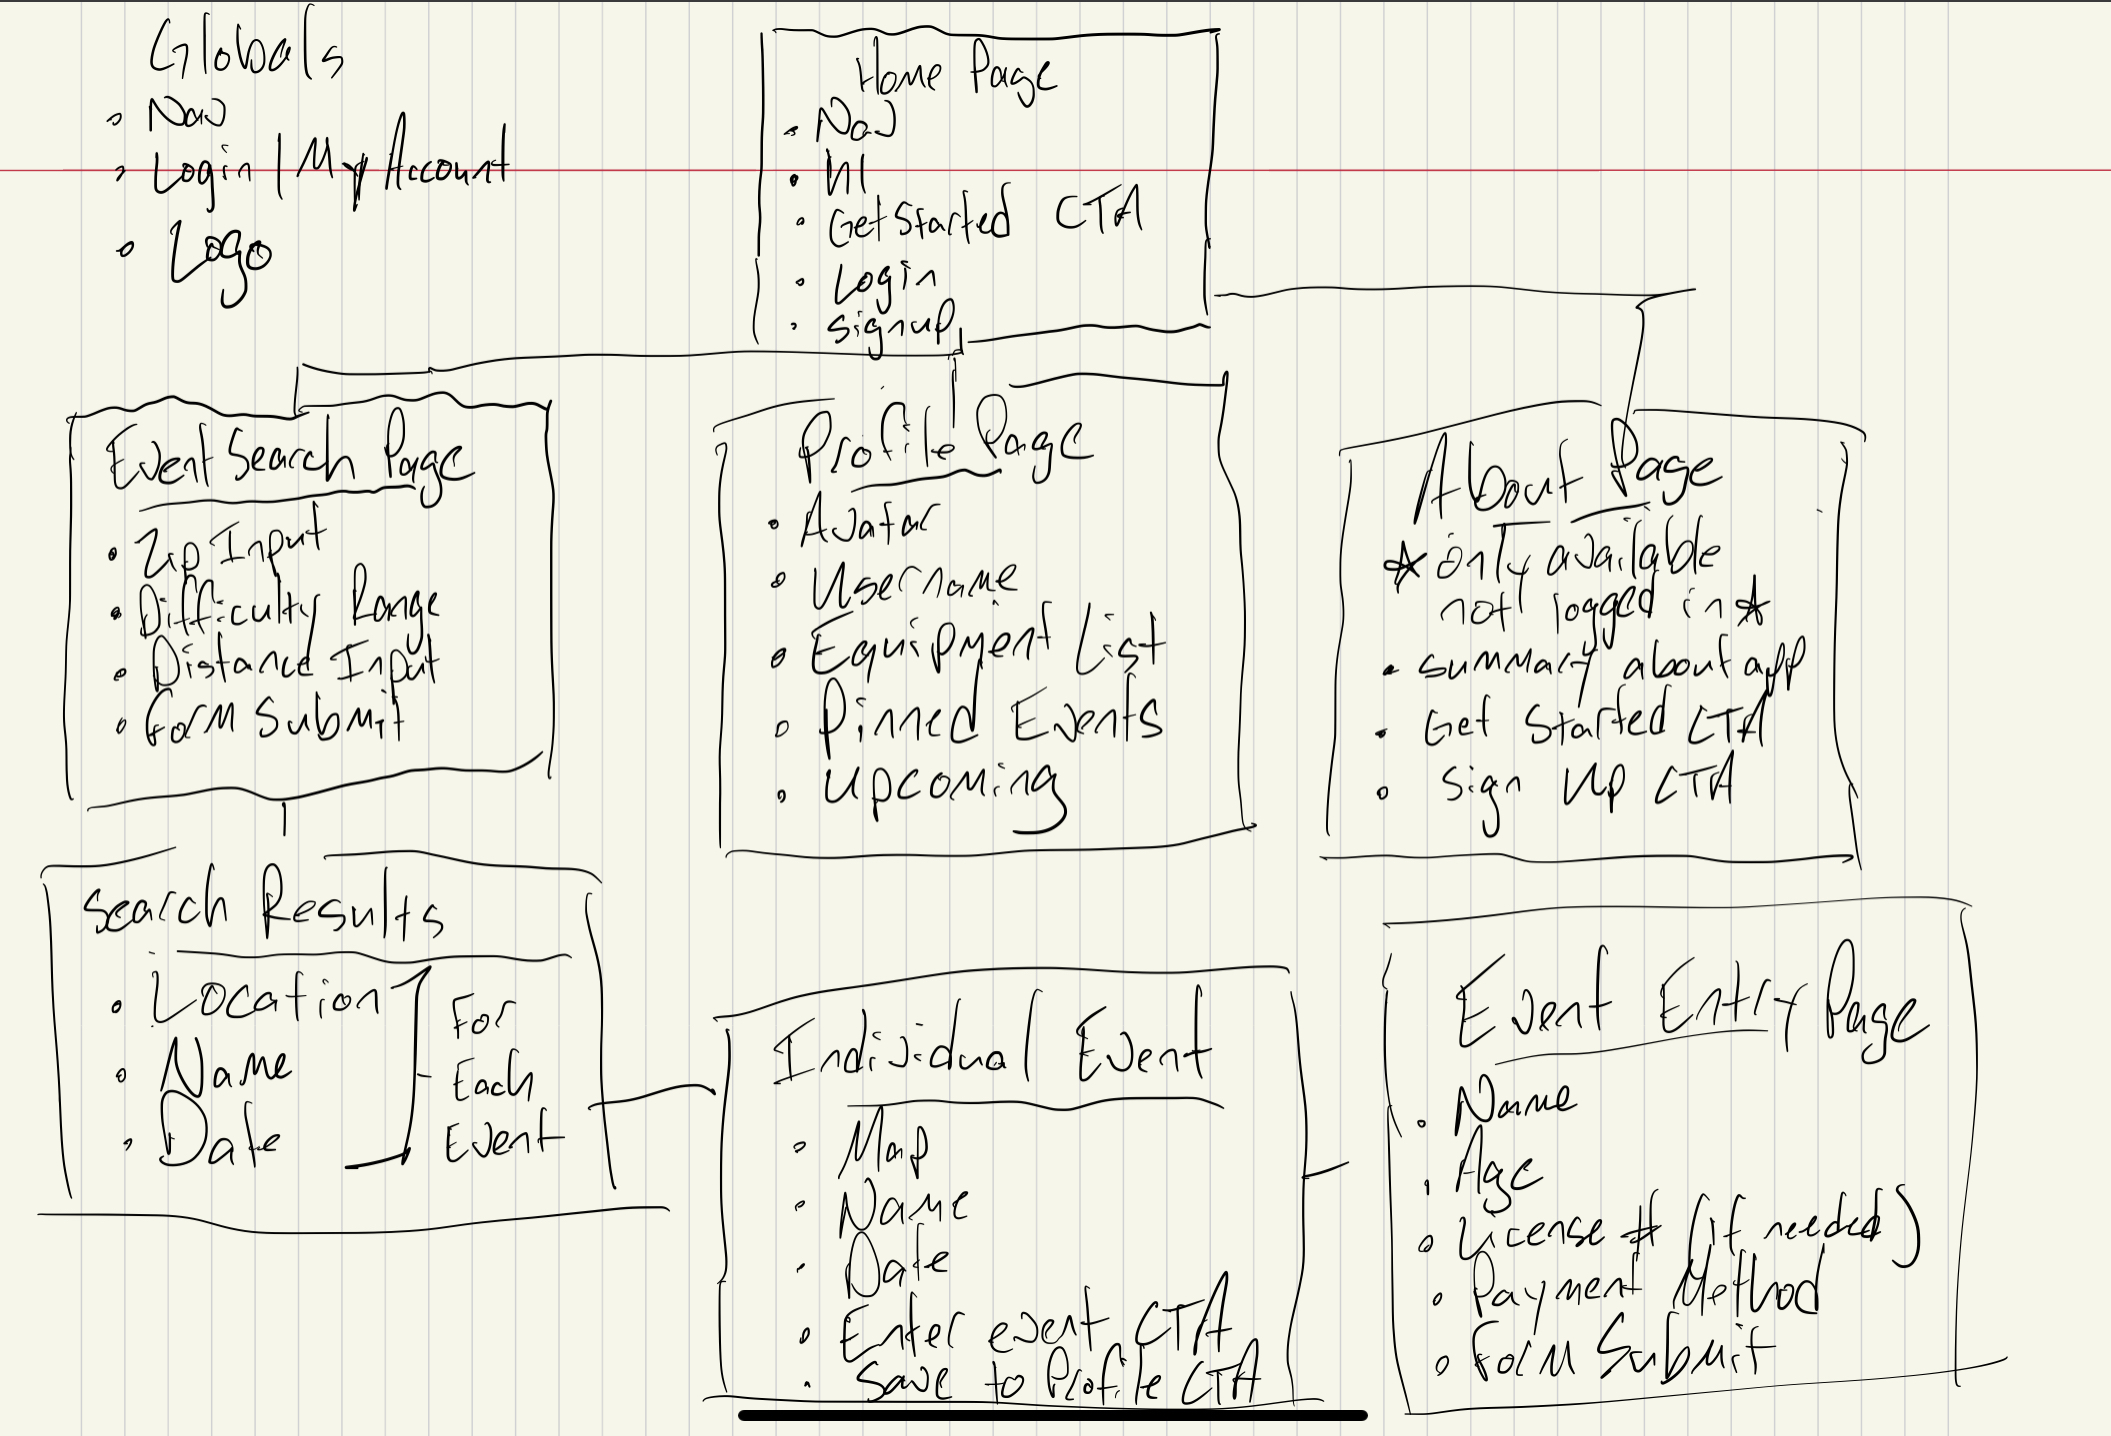 Globals
• Nav
• Login | My Account
• Logo
Home Page
• Nav
• h1
• Get Started CTA
• Login
• signup
Event Search Page
• Zip Input
• Difficulty Range
• Distance Input
• Form Submit
Profile Page
• Avatar
• Username
• Equipment List
• Pinned Events
• Upcoming
About Page
☆ only available
not logged in ☆
• summary about app
• Get Started CTA
• Sign Up CTA
Search Results
• Location
• Name
• Date
For
Each
Event
Individual Event
• Map
• Name
• Date
• Enter event CTA
• Save to Profile CTA
Event Entry Page
• Name
• Age
• License # (if needed)
• Payment Method
• Form Submit